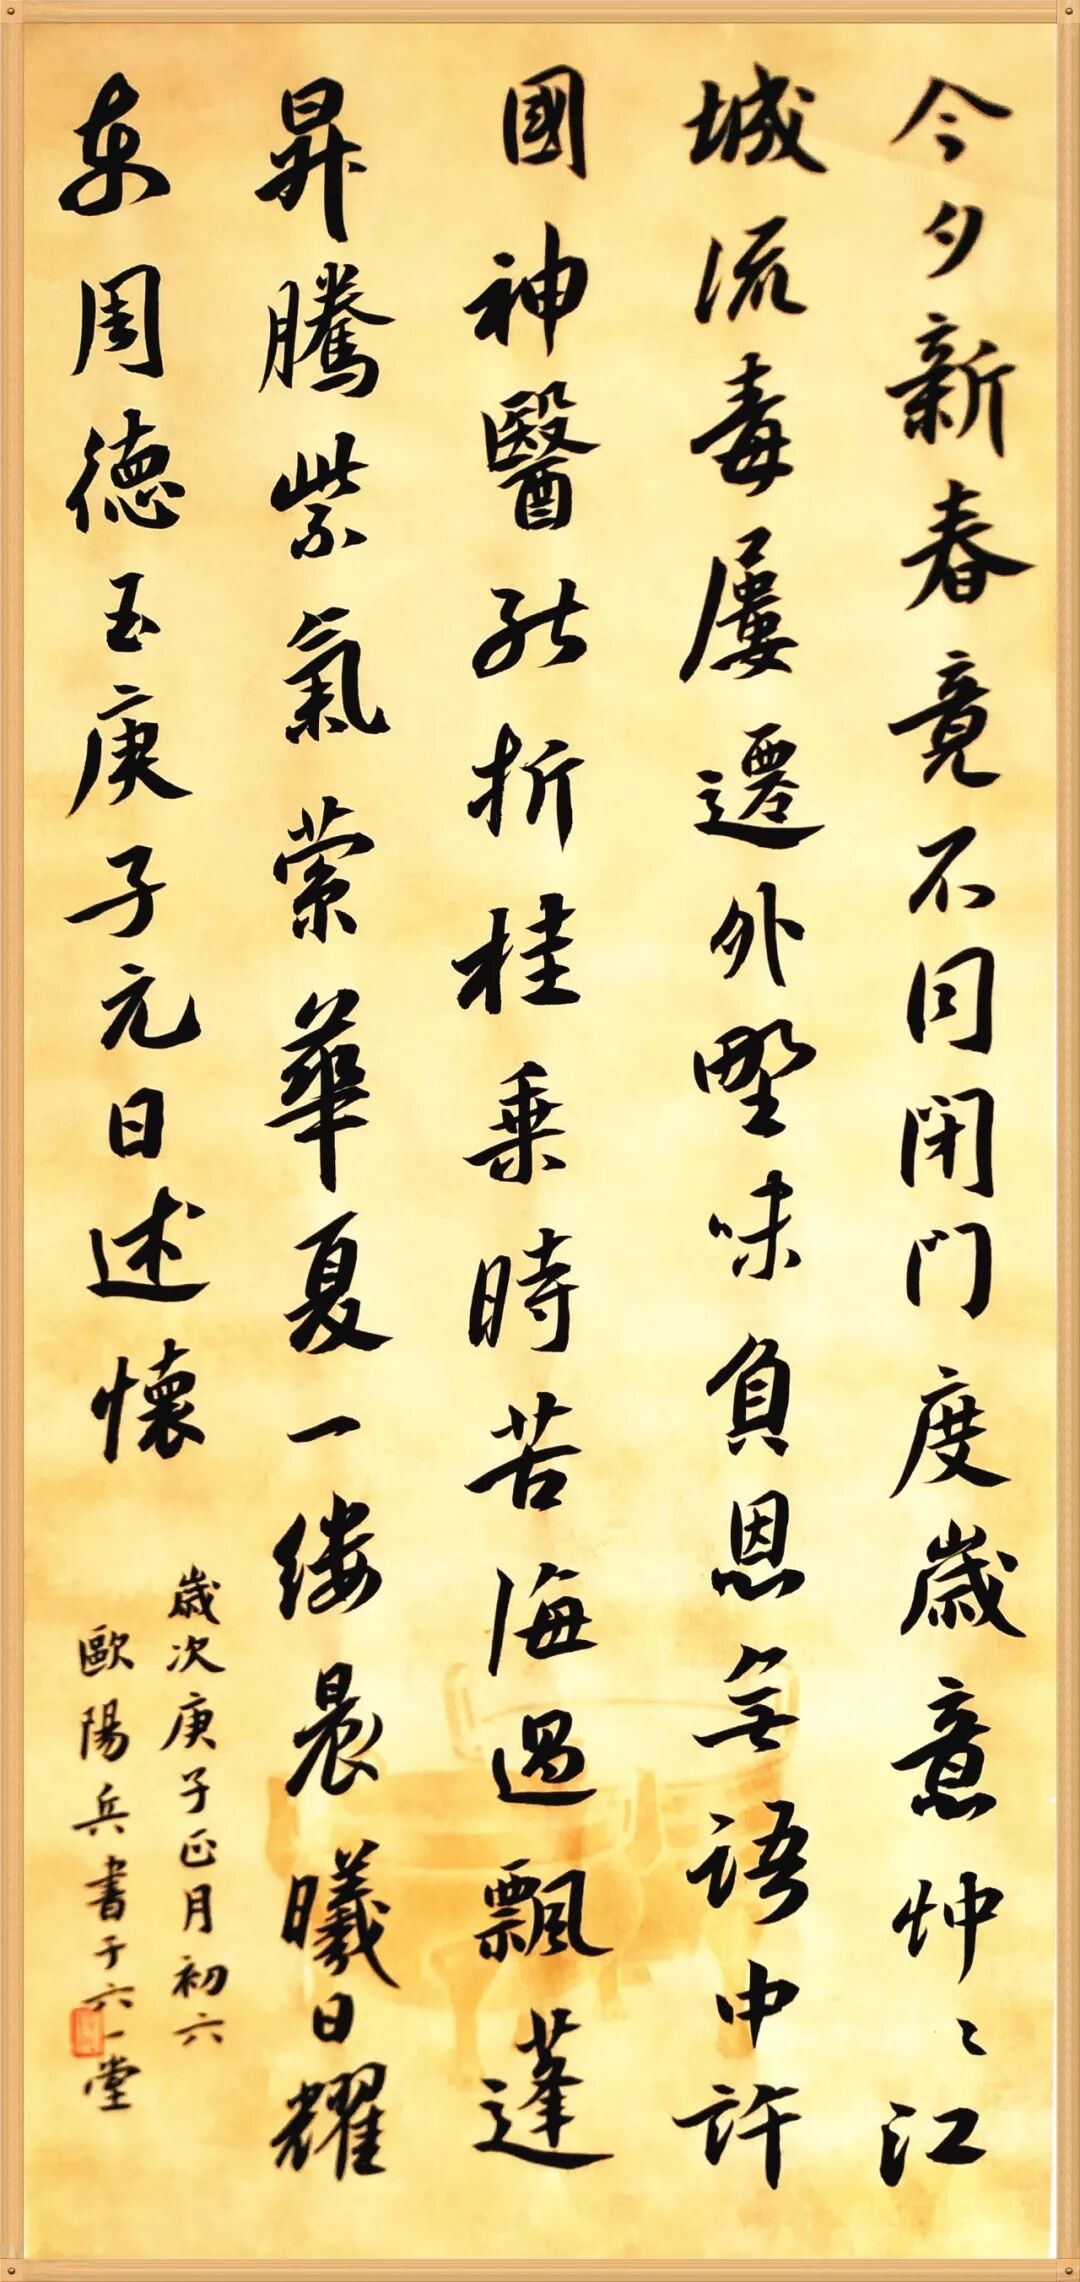 今夕新春竟不同闭门度歲意忡〻江
城流毒屢遷外野味負恩無語中許
國神醫能折桂乘時苦海過飄蓬
昇騰紫氣萦華夏一缕晨曦日耀
东周德玉庚子元日述懷
歲次庚子正月初六
歐陽兵書于六一堂